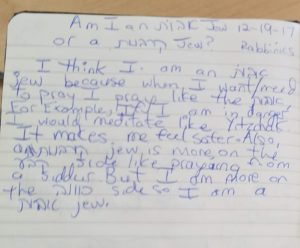 Am I an אבות Jew 12-19-17
or a קרבנות Jew? Rabbinics
I think I am an אבות
jew because when I want/need
to pray I pray like the אבות.
For Example, If I am in danger
I would meditate like יצחק.
It makes me feel safer. Also,
a קרבנות jew is more on the
קבע side like praying from
a siddur. But I am more on
the כוונה side so I am a
אבות jew.